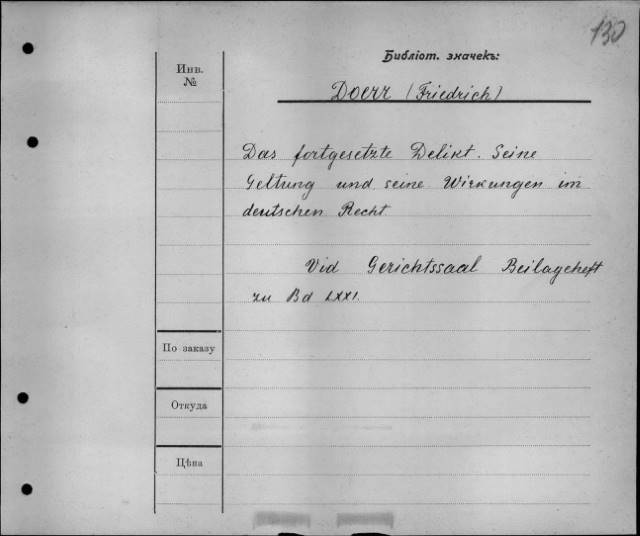 130
Библіот. значекъ:
Инв.
№
Doerr (Friedrich)
Das fortgesetzte Delikt. Seine
Geltung und seine Wirkungen im
deutschen Recht
Vid Gerichtssaal Beilageheft
zu Bd LXXI.
По заказу
Откуда
Цѣна